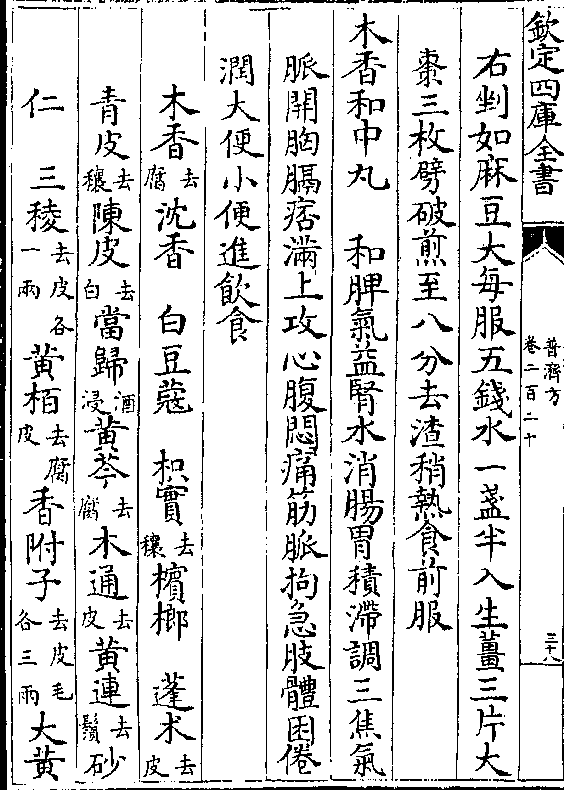 欽定四庫全書
普濟方
卷二百二十
三十八
右剉如麻豆大每服五錢水一盞半入生薑三片大
棗三枚劈破煎至八分去渣稍熱食前服
木香和中丸　和脾氣益腎水消腸胃積滯調三焦氣
脈開胸膈痞滿上攻心腹悶痛筋脈拘急肢體困倦
潤大便小便進飲食
木香去腐沈香　白豆蔻　枳實去穰檳榔　蓬朮去皮
青皮去穰陳皮去白當歸酒浸黄芩去腐木通去皮黄連去鬚砂
仁　三稜去皮各一兩黄栢去腐皮香附子去皮毛各三兩大黄